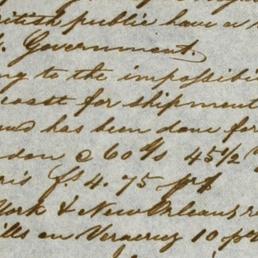 British public have a
Government.
ing to the impossibi
coast for shipment
has been done for
don @ 60% 45 1/2
is fs 4.75 pr $
York & New Orleans
lls on Veracruz 10 pr